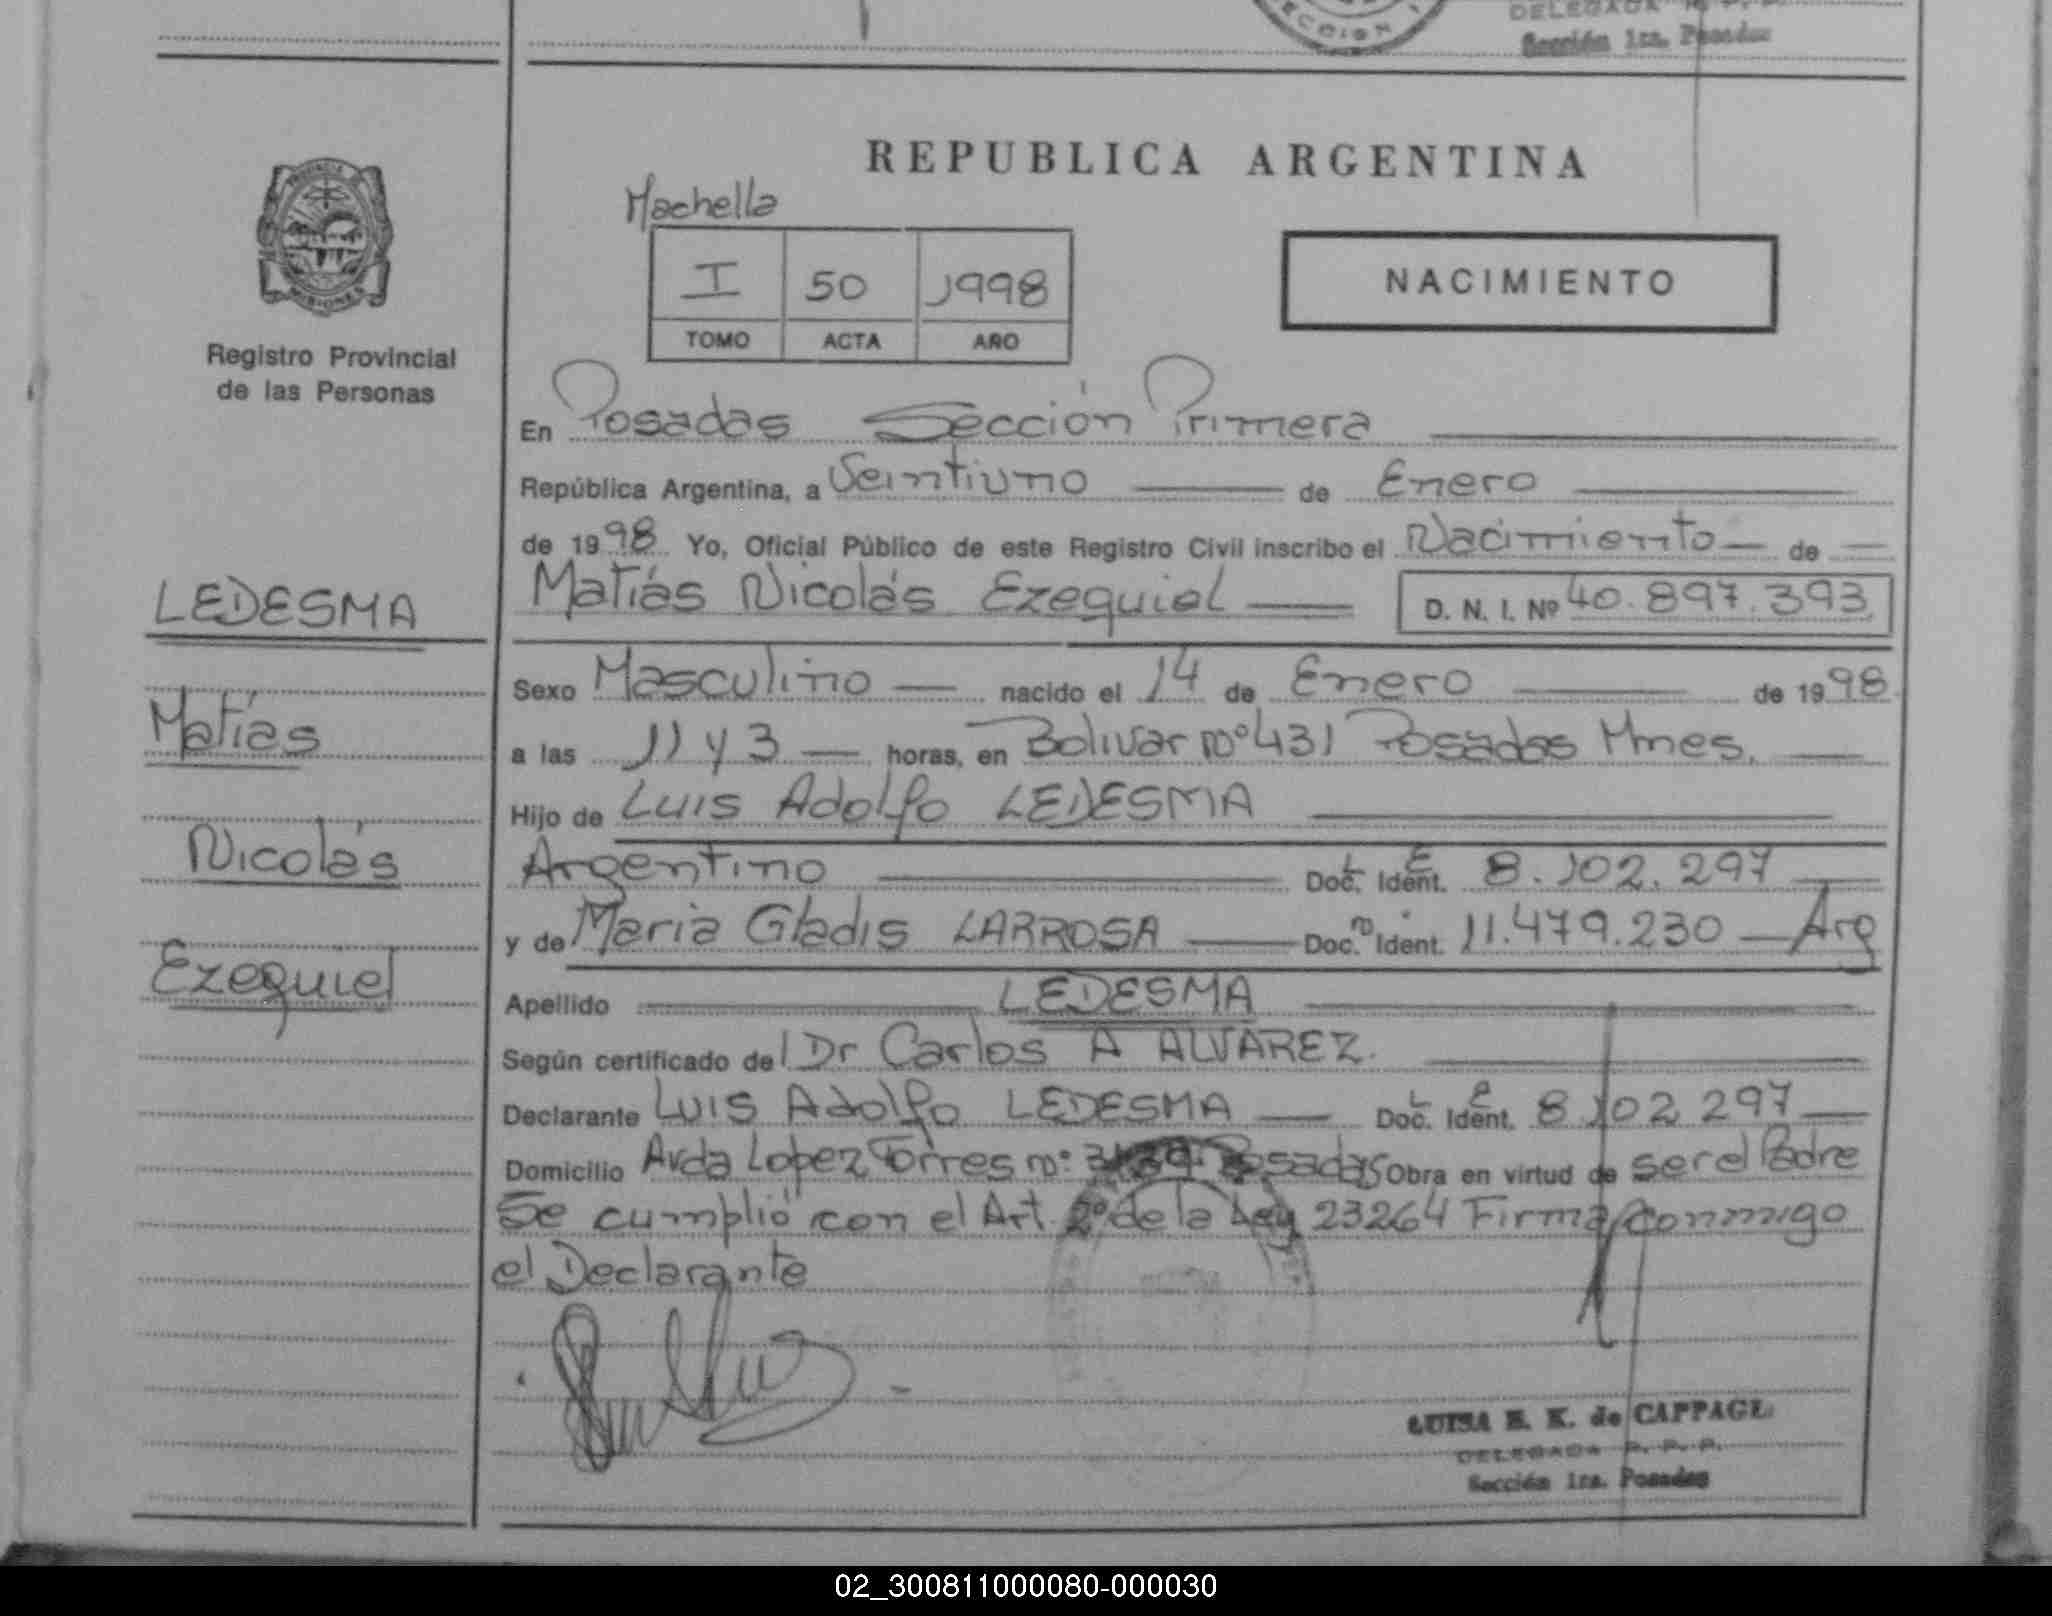 SECCION 1
DELEGADA R. P. P.
Sección 1ra. Posadas
REPUBLICA ARGENTINA
Machella
I 50 1998
TOMO ACTA AÑO
NACIMIENTO
PROVINCIA DE
MISIONES
Registro Provincial
de las Personas
En Posadas Sección Primera
República Argentina, a Veintiuno de Enero
de 1998 Yo, Oficial Público de este Registro Civil inscribo el Nacimiento de
Matías Nicolás Ezequiel D. N. I. Nº 40.897.393
LEDESMA
Matías
Nicolás
Ezequiel
Sexo Masculino nacido el 14 de Enero de 1998
a las 11 y 3 horas, en Bolivar nº 431 Posadas Mnes.
Hijo de Luis Adolfo LEDESMA
Argentino Doc. Ident. L E 8.102.297
y de Maria Gladis LARROSA Doc. Ident. 11.479.230 Arg
Apellido LEDESMA
Según certificado del Dr Carlos A ALVAREZ.
Declarante Luis Adolfo LEDESMA Doc. Ident. L E 8.102 297
Domicilio Avda Lopez Torres nº: Posadas Obra en virtud de ser el Padre
Se cumplió con el Art. 2º de la Ley 23264 Firma conmigo
el Declarante
LUISA E. K. de CAPPAGLI
DELEGADA R. P. P.
Sección 1ra. Posadas
02_300811000080-000030